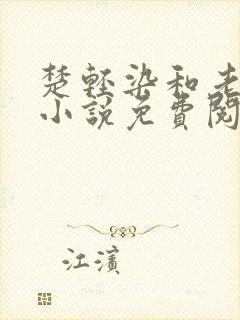 楚轻染和老
小說免費閱
江濱